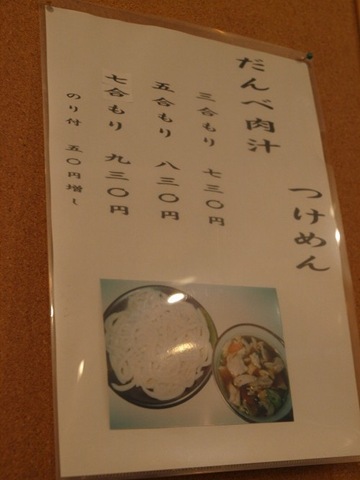 だんべ肉汁
つけめん
三合もり 七三〇円
五合もり 八三〇円
七合もり 九三〇円
のり付 五〇円増し